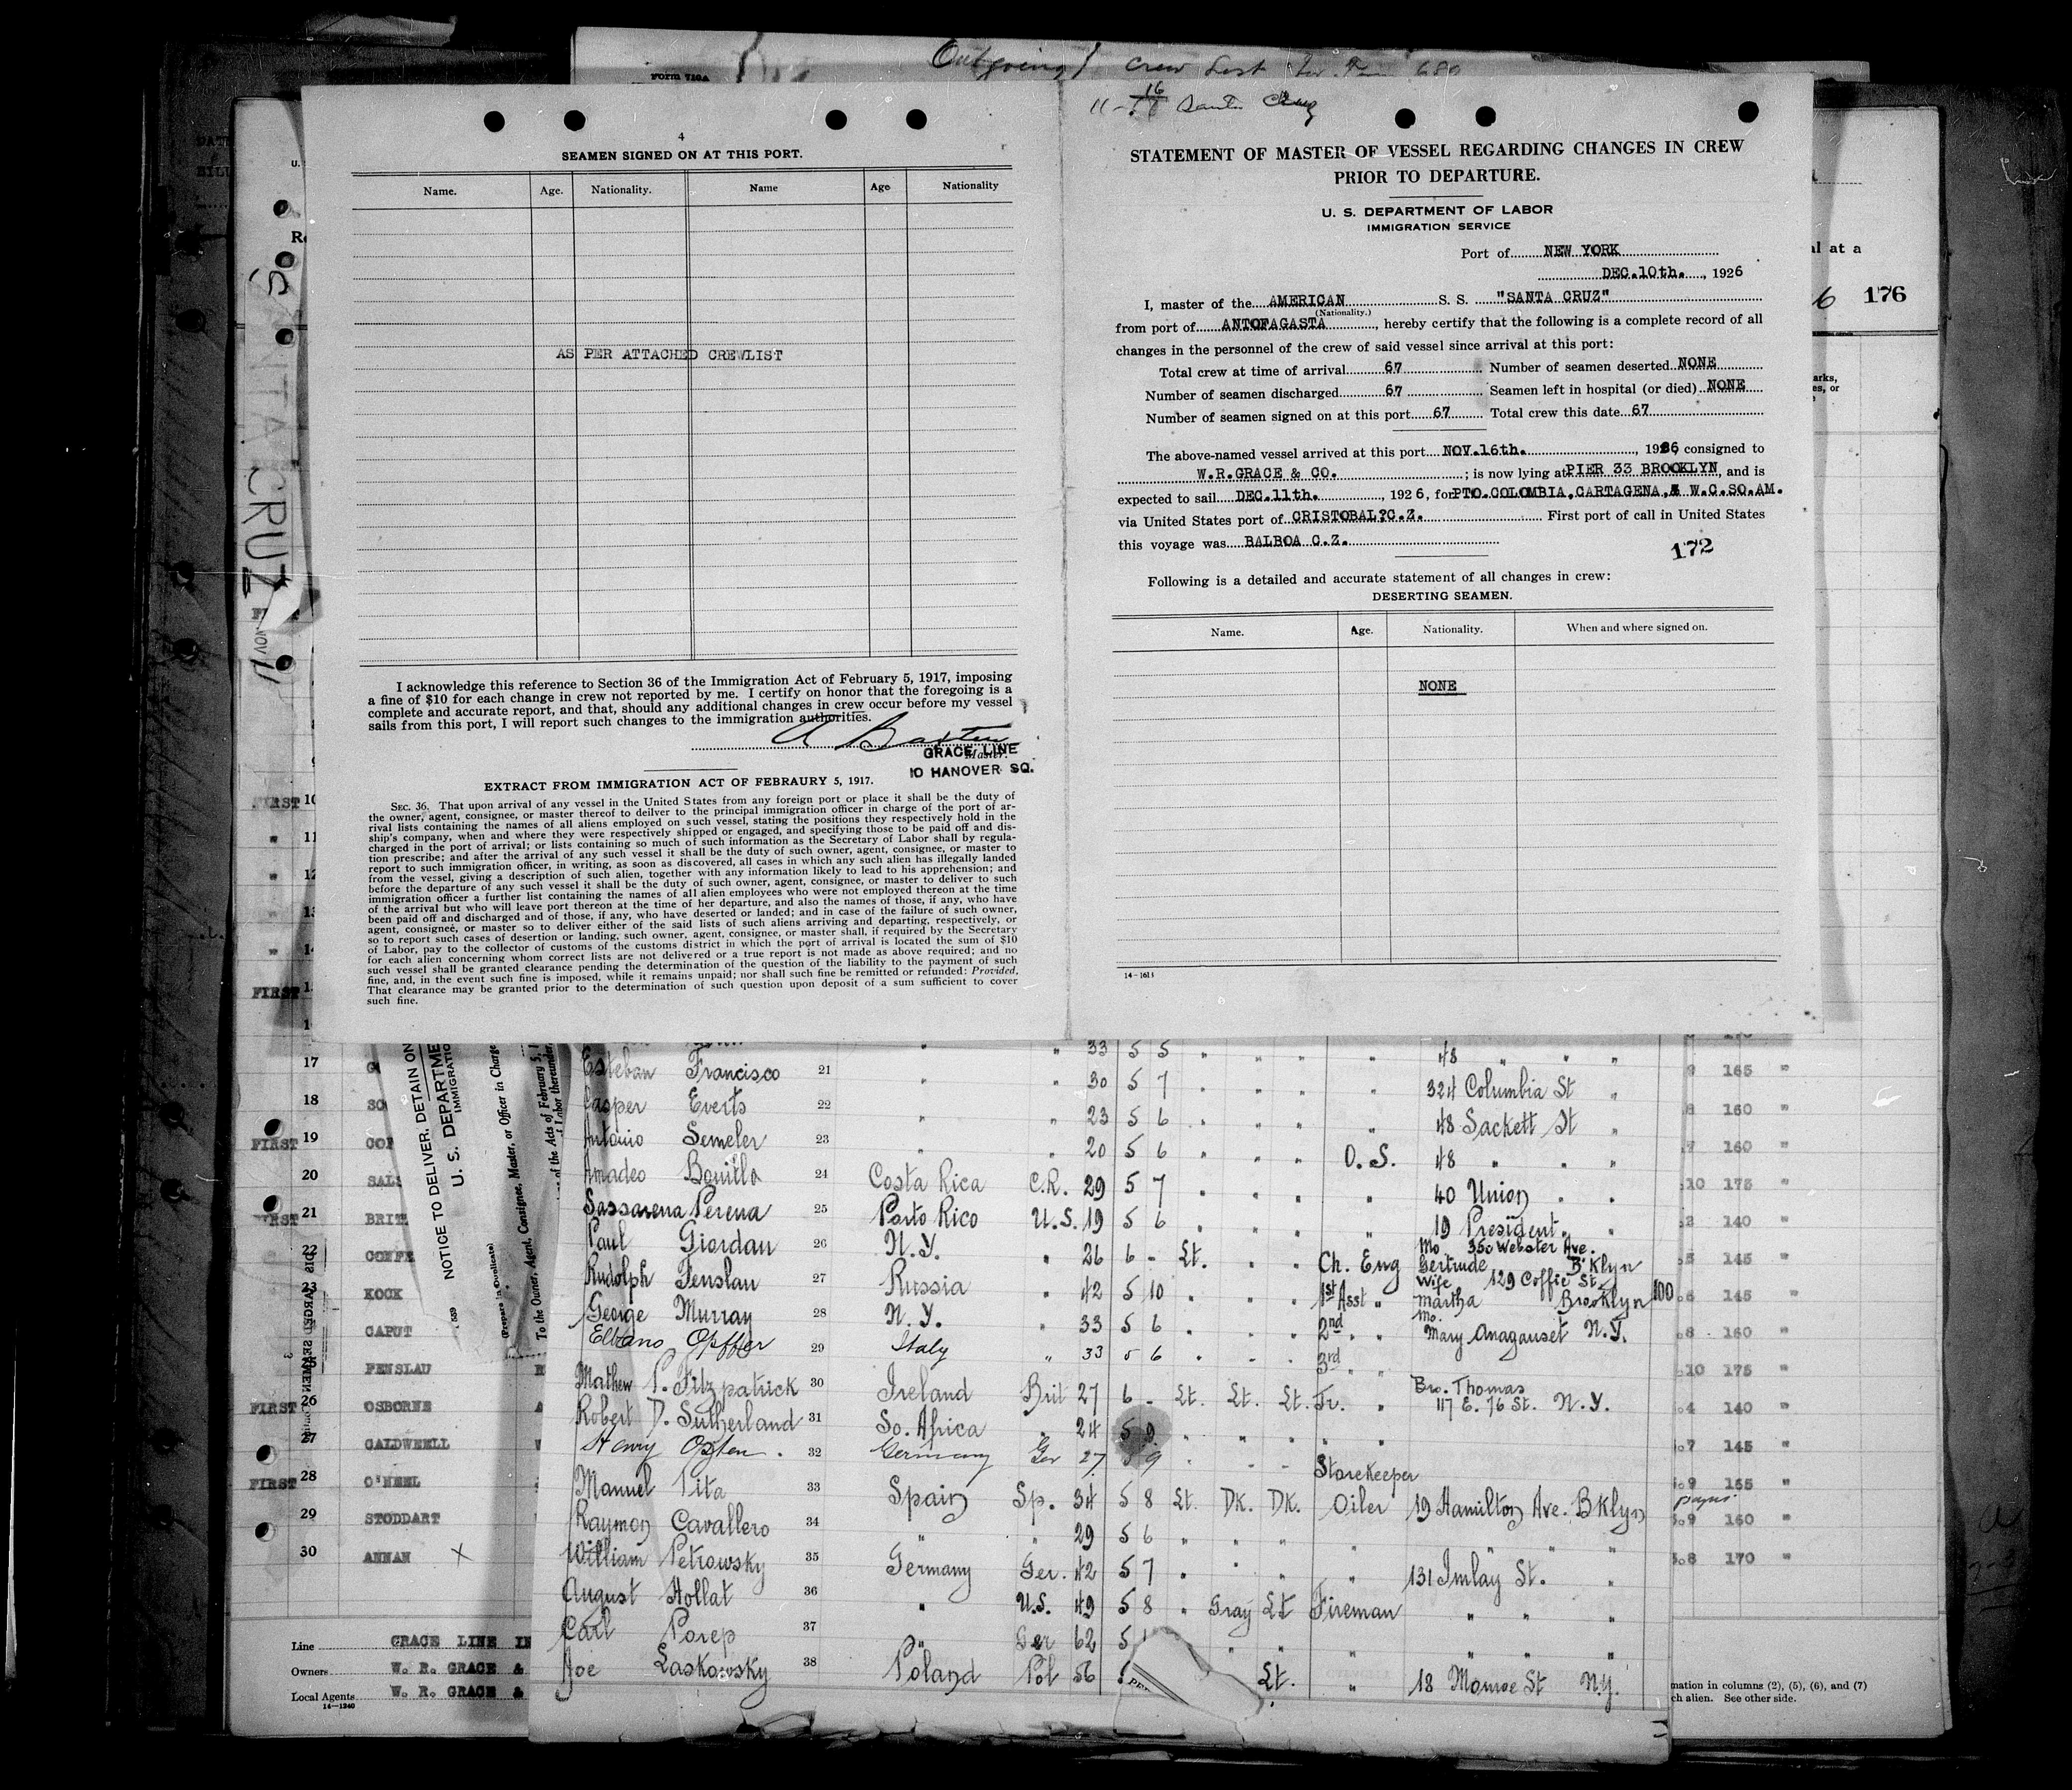 Outgoing Crew List
Form 710A
4
SEAMEN SIGNED ON AT THIS PORT.
Name. Age. Nationality. Name Age Nationality
AS PER ATTACHED CREWLIST
I acknowledge this reference to Section 36 of the Immigration Act of February 5, 1917, imposing
a fine of $10 for each change in crew not reported by me. I certify on honor that the foregoing is a
complete and accurate report, and that, should any additional changes in crew occur before my vessel
sails from this port, I will report such changes to the immigration authorities.
A Baxter
Master.
GRACE LINE
10 HANOVER SQ.
EXTRACT FROM IMMIGRATION ACT OF FEBRAURY 5, 1917.
SEC. 36. That upon arrival of any vessel in the United States from any foreign port or place it shall be the duty of
the owner, agent, consignee, or master thereof to deilver to the principal immigration officer in charge of the port of ar-
rival lists containing the names of all aliens employed on such vessel, stating the positions they respectively hold in the
ship's company, when and where they were respectively shipped or engaged, and specifying those to be paid off and dis-
charged in the port of arrival; or lists containing so much of such information as the Secretary of Labor shall by regula-
tion prescribe; and after the arrival of any such vessel it shall be the duty of such owner, agent, consignee, or master to
report to such immigration officer, in writing, as soon as discovered, all cases in which any such alien has illegally landed
from the vessel, giving a description of such alien, together with any information likely to lead to his apprehension; and
before the departure of any such vessel it shall be the duty of such owner, agent, consignee, or master to deliver to such
immigration officer a further list containing the names of all alien employees who were not employed thereon at the time
of the arrival but who will leave port thereon at the time of her departure, and also the names of those, if any, who have
been paid off and discharged and of those, if any, who have deserted or landed; and in case of the failure of such owner,
agent, consignee, or master so to deliver either of the said lists of such aliens arriving and departing, respectively, or
so to report such cases of desertion or landing, such owner, agent, consignee, or master shall, if required by the Secretary
of Labor, pay to the collector of customs of the customs district in which the port of arrival is located the sum of $10
for each alien concerning whom correct lists are not delivered or a true report is not made as above required; and no
such vessel shall be granted clearance pending the determination of the question of the liability to the payment of such
fine, and, in the event such fine is imposed, while it remains unpaid; nor shall such fine be remitted or refunded: Provided,
That clearance may be granted prior to the determination of such question upon deposit of a sum sufficient to cover
such fine.
11-16 Santa Cruz
STATEMENT OF MASTER OF VESSEL REGARDING CHANGES IN CREW
PRIOR TO DEPARTURE.
U. S. DEPARTMENT OF LABOR
IMMIGRATION SERVICE
Port of NEW YORK
DEC.10th. , 1926
I, master of the AMERICAN S. S. "SANTA CRUZ"
(Nationality.)
from port of ANTOFAGASTA , hereby certify that the following is a complete record of all
changes in the personnel of the crew of said vessel since arrival at this port:
Total crew at time of arrival 67 Number of seamen deserted NONE
Number of seamen discharged 67 Seamen left in hospital (or died) NONE
Number of seamen signed on at this port 67 Total crew this date 67
The above-named vessel arrived at this port NOV.16th. , 1926 consigned to
W.R.GRACE & CO. ; is now lying at PIER 33 BROOKLYN , and is
expected to sail DEC.11th. , 1926, for PTO.COLOMBIA,CARTAGENA,& W.C.SO.AM.
via United States port of CRISTOBAL?C.Z. First port of call in United States
this voyage was BALBOA C.Z.
172
Following is a detailed and accurate statement of all changes in crew:
DESERTING SEAMEN.
Name. Age. Nationality. When and where signed on.
NONE
14-1611
al at a
6 176
SANTA CRUZ
NOTICE TO DELIVER, DETAIN ON
U. S. DEPARTME
IMMIGRATIO
(Prepare in Duplicate)
To the Owner, Agent, Consignee, Master, or Officer in Charge
of the Acts of February 5, 1
of Labor thereunder,
" " 33 5 5 " " " " 48 " " "
Esteban Francisco 21 " " 30 5 7 " " " " 324 Columbia St "
Casper Everts 22 " " 23 5 6 " " " " 48 Sackett St "
Antonio Semeler 23 " " 20 5 6 " " " O. S. 48 " " "
Amadeo Bonilla 24 Costa Rica C.R. 29 5 7 " " " " 40 Union " "
Sassarena Perena 25 Porto Rico U.S. 19 5 6 " " " " 19 President " "
Paul Giordan 26 N.Y. " 26 6 - Lt. " " Ch. Eng Mo Gertrude 350 Webster Ave. B'klyn
Rudolph Fenslau 27 Russia " 42 5 10 " " " 1st Asst " Wife Martha 129 Coffie St. Brooklyn 100
George Murray 28 N.Y. " 33 5 6 " " " 2nd " " Mo. Mary Anaganset N.Y.
Elbano Opffer 29 Italy " 33 5 6 " " " 3rd " "
Mathew P. Fitzpatrick 30 Ireland Brit 27 6 - Lt. Lt. Lt. Jr. " Bro. Thomas 117 E. 76 St. N.Y.
Robert D. Sutherland 31 So. Africa " 24 5 9 " " " " "
Henry 32 Germany Ger 27 5 9 " " " Storekeeper
Manuel Pita 33 Spain Sp. 34 5 8 Lt. Dk. Dk. Oiler 19 Hamilton Ave. Bklyn
Raymon Cavallero 34 " " 29 5 6 " " " " " " "
William Petrowsky 35 Germany Ger. 42 5 7 " " " 131 Imlay St. "
August Hollat 36 " U.S. 49 5 8 " Gray Lt Fireman " " "
Carl Porep 37 " Ger 62 5 " " " " " "
Joe Laskowsky 38 Poland Pol 56 5 Lt. " 18 Monroe St N.Y.
FIRST 10
" 11
" 12
" 13
" 14
FIRST 15
17
18
FIRST 19
20 SALS
FIRST 21 BRIT
22 CONFE
23 KOCK
CAPUT
FENSLAU
FIRST 26 OSBORNE
27 CALDWELL
FIRST 28 O'NEEL
29 STODDART
30 ANNAN X
165 "
160 "
160 "
10 175 "
140 "
145 "
145 "
160 "
10 175
140
145 "
155 "
160 "
170 "
Line GRACE LINE IN
Owners W. R. GRACE &
Local Agents W. R. GRACE &
14-1240
mation in columns (2), (5), (6), and (7)
ch alien. See other side.